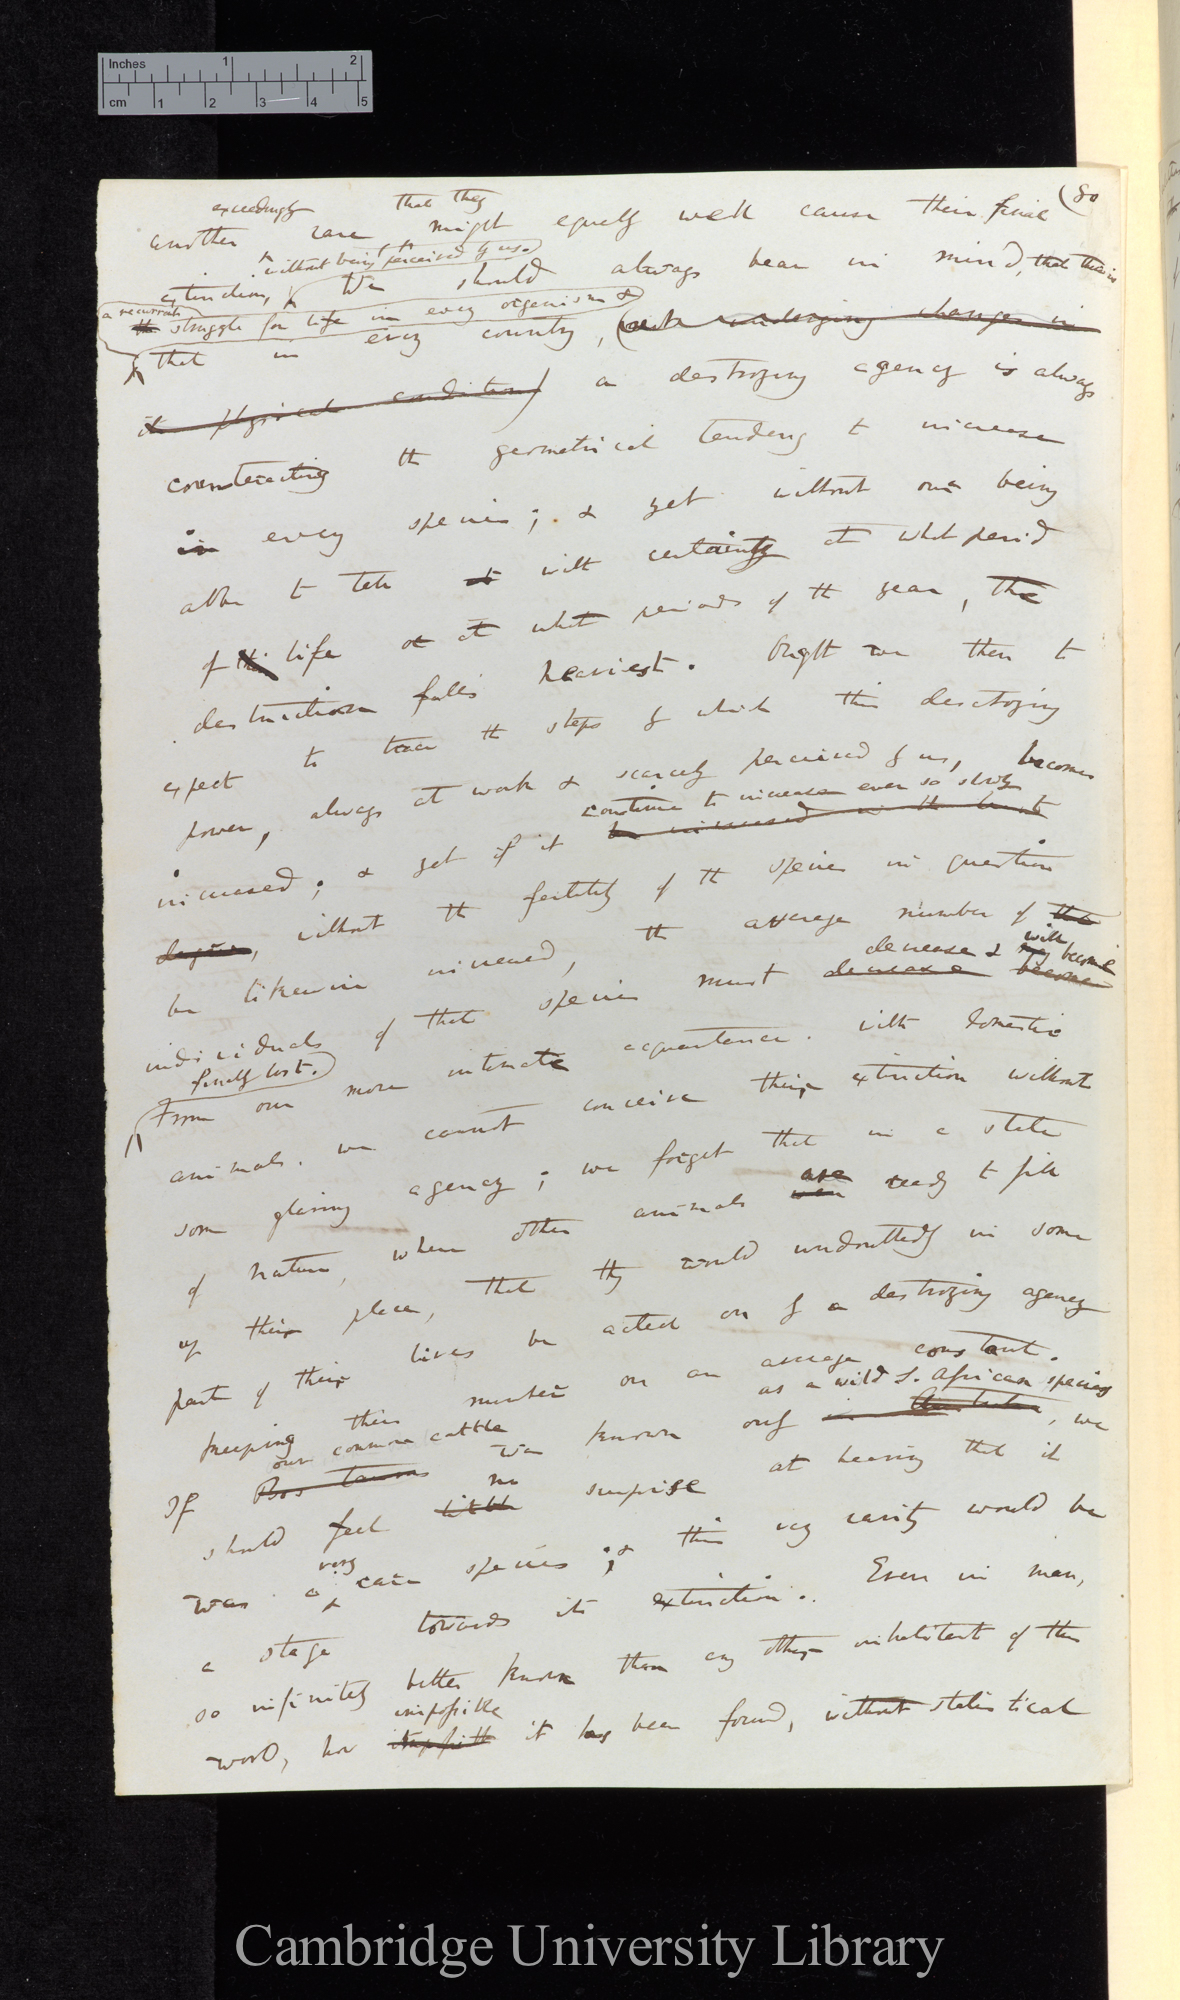 Inches 1 2
cm 1 2 3 4 5
(80
exceedingly that they
another rare might equally well cause their final
without being perceived by us.
extinction, We should always bear in mind, that there is
a recurrent
the struggle for life in every organism &
that in every country, (each undergoing changes in
its physical condition) a destroying agency is always
counteracting the geometrical tendency to increase
in every species; & yet without our being
able to tell at with certainty at what period
of life or at what periods of the year, the
destruction falls heaviest. Ought we then to
expect to trace the steps by which this destroying
power, always at work & scarcely perceived by us, becomes
continue to increase ever so slowly
increased; & yet if it be increased in the least
degree, without the fertility of the species in question
be likewise increased, the average number of the
decrease & will may become
individuals of that species must decrease become
finally lost.
From our more intimate acquaintance with domestic
animals, we cannot conceive their extinction without
some glaring agency; we forget that in a state
are
of nature, where other animals were ready to fill
up their place, that they would undoubtedly in some
part of their lives be acted on by a destroying agency
keeping their number on an average constant.
our common cattle as a wild S. African species
If Bos taurus was known only in Australia, we
no
should feel little surprise at hearing that it
very
was a rare species; & this very rarity would be
a stage towards its extinction. Even in man,
so infinitely better known than any other inhabitant of this
impossible
world, how impossible it has been found, without statistical
Cambridge University Library